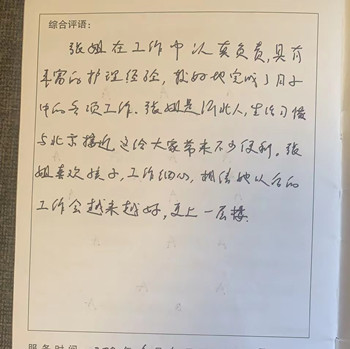 综合评语：
张姐在工作中认真负责，具有
丰富的护理经验，较好地完成了月子
中的各项工作。张姐是河北人，生活习惯
与北京接近，这给大家带来不少便利。张
姐喜欢孩子，工作细心，相信她以后的
工作会越来越好，更上一层楼。
服务时间